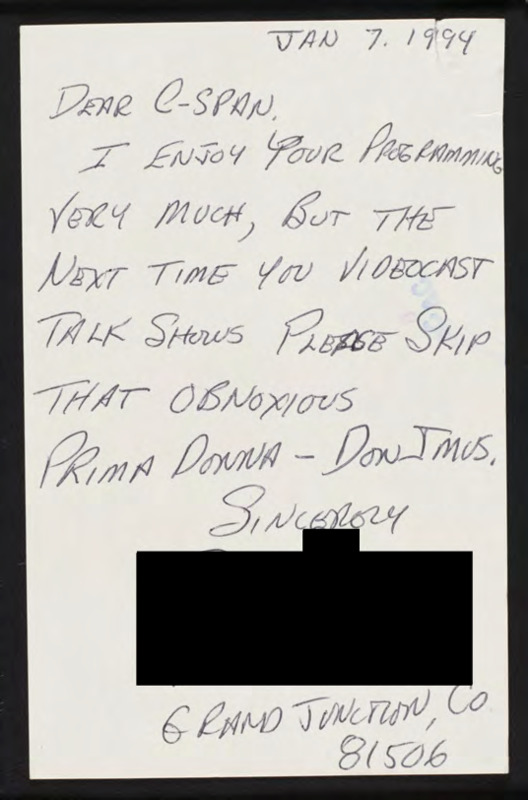 JAN 7. 1994
DEAR C-SPAN.
I ENJOY YOUR PROGRAMMING
VERY MUCH, BUT THE
NEXT TIME YOU VIDEOCAST
TALK SHOWS PLEASE SKIP
THAT OBNOXIOUS
PRIMA DONNA - DON IMUS.
SINCERELY
GRAND JUNCTION, CO
81506